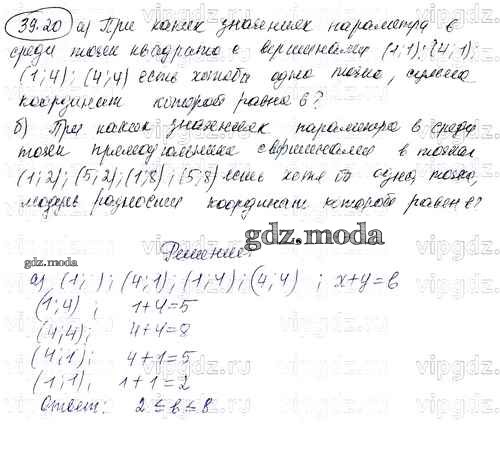 39.20 а) При каких значениях параметра в
среди точек квадрата с вершинами (1;1); (4;1);
(1;4); (4;4) есть хотя бы одна точка, сумма
координат которой равна в?
б) При каких значениях параметра в среди
точек прямоугольника с вершинами в точках
(1;2); (5;2); (1;8); (5;8) есть хотя бы одна точка,
модуль разности координат которой равен в?
gdz.moda
Решение:
gdz.moda
а) (1; ); (4;1); (1;4); (4;4) ; x+y=в
(1;4) ; 1+4=5
(4;4); 4+4=8
(4;1); 4+1=5
(1;1), 1+1=2
Ответ: 2 ≤ в ≤ 8
vipgdz.ru